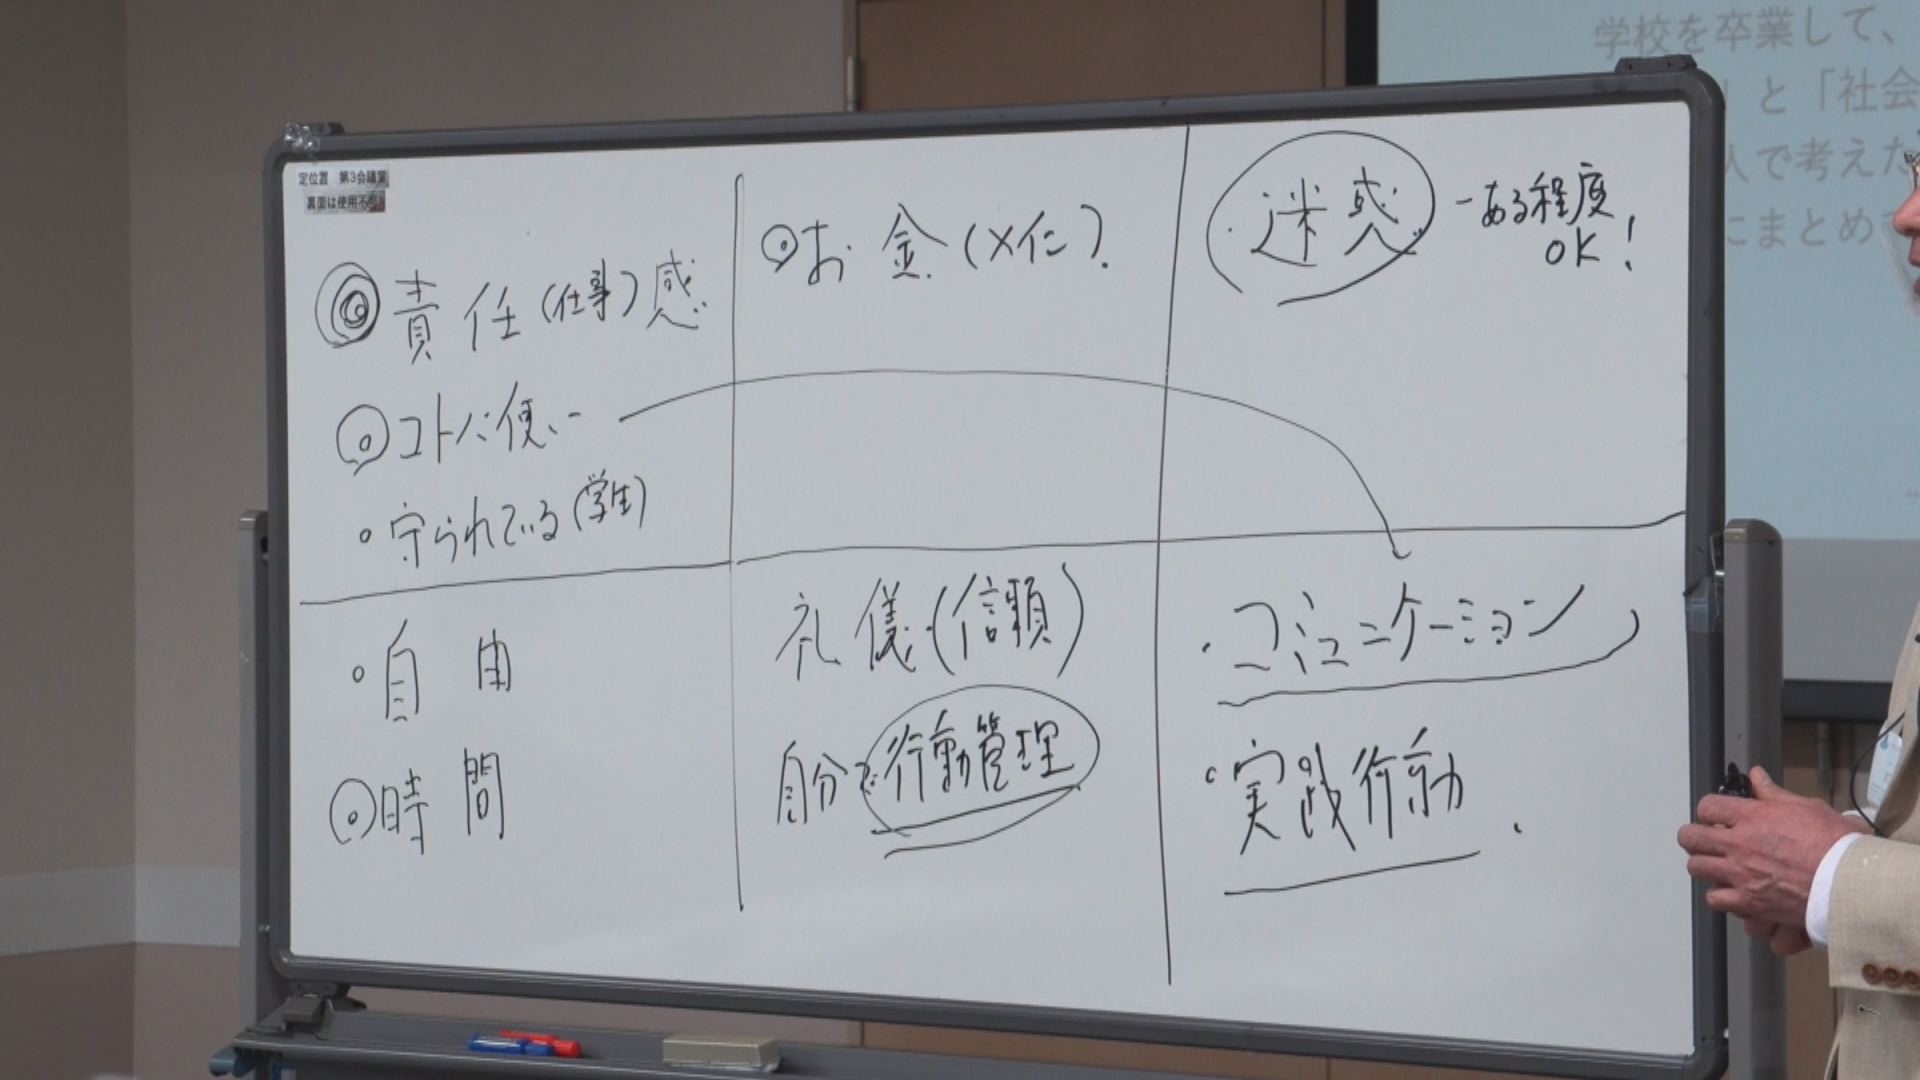 定位置 第3会議室
裏面は使用不可
◎責任(仕事)感
◎コトバ使い
・守られている(学生)
◎お金(メ仁)
迷惑 -ある程度
OK!
・自由
◎時間
礼儀(信頼)
自分で行動管理
・コミュニケーション
・実践行動
学校を卒業して、
と「社会
人で考えた
にまとめ